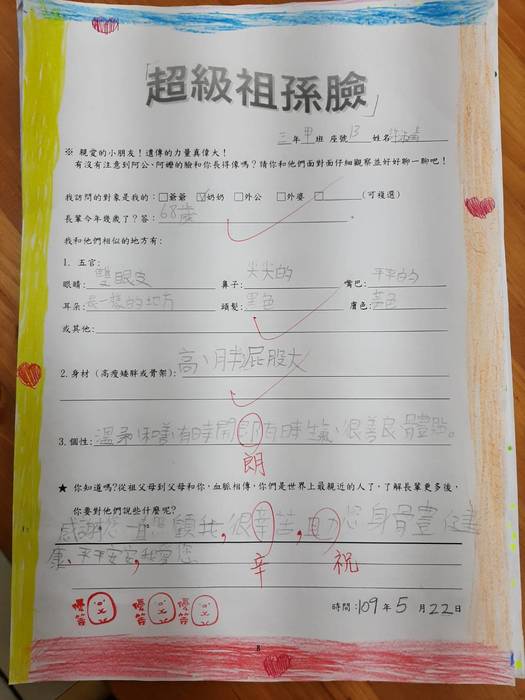 「超級祖孫臉」
三年甲班 座號13 姓名
※ 親愛的小朋友！遺傳的力量真偉大！
有沒有注意到阿公、阿嬤的臉和你長得像嗎？請你和他們面對面仔細觀察並好好聊一聊吧！
我訪問的對象是我的：□爺爺 ☑奶奶 □外公 □外婆 □ (可複選)
長輩今年幾歲了？答：68歲。
我和他們相似的地方有：
1. 五官：
眼睛：雙眼皮 鼻子：尖尖的 嘴巴：平平的
耳朵：長一樣的地方 頭髮：黑色 膚色：黃色
或其他：
2. 身材（高瘦矮胖或骨架）：高、胖屁股大
3. 個性：溫柔和善、有時開朗有時生氣、很善良體貼。
朗
★ 你知道嗎？從祖父母到父母和你，血脈相傳，你們是世界上最親近的人了，了解長輩更多後，
你要對他們說些什麼呢？
感謝您一直照顧我，很辛苦，助您身體健
康、平平安安，我愛您
辛 祝
優等 優等 優等
時間：109年5月22日
8